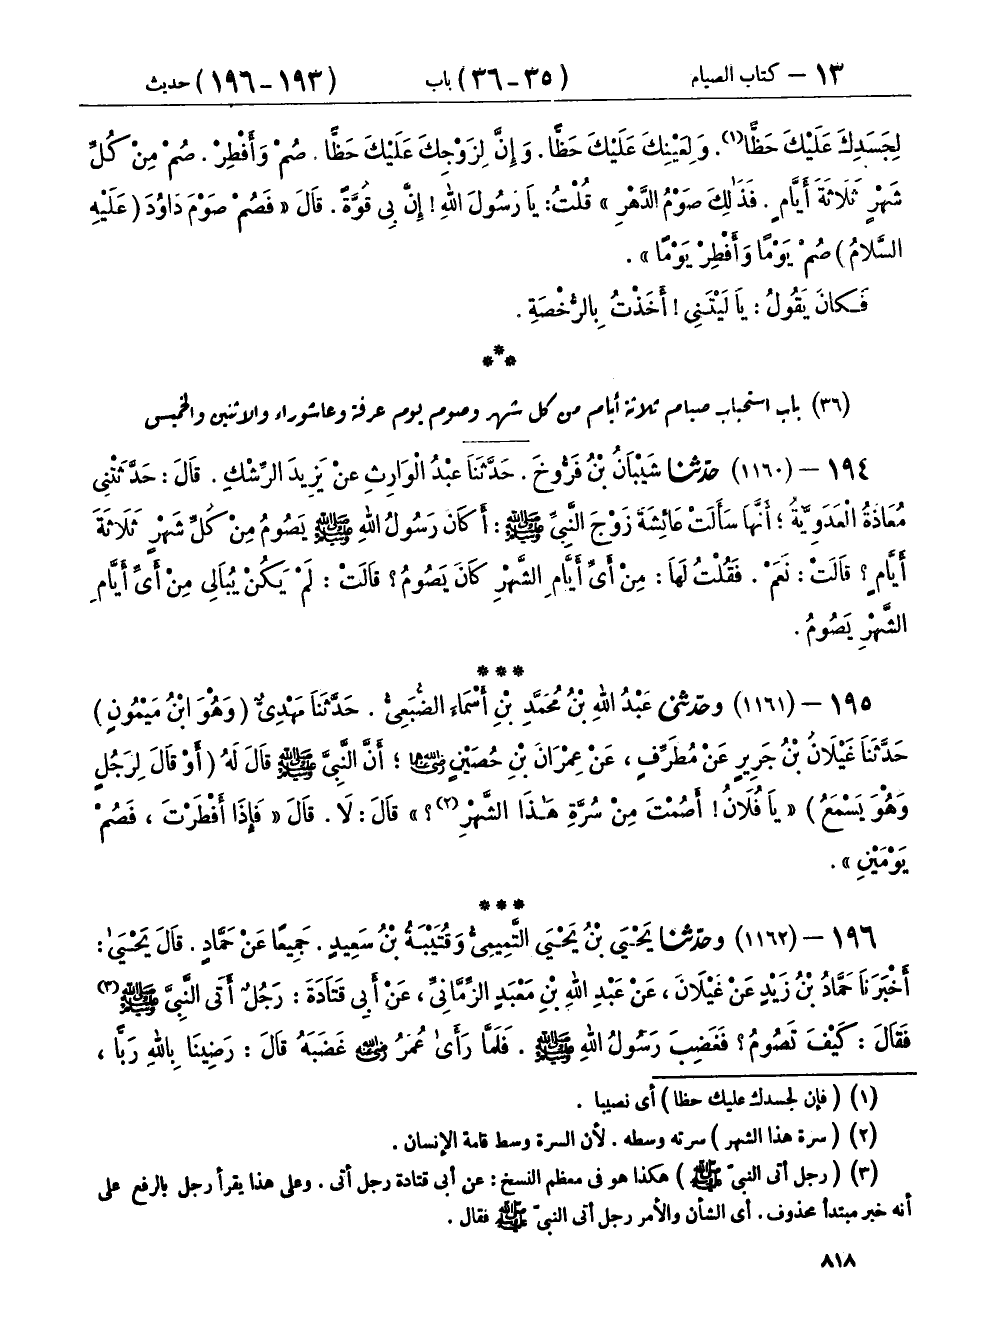 ١٣ – كتاب الصيام (٣٥-٣٦) باب (١٩٣-١٩٦) حديث
لِجَسَدِكَ عَلَيْكَ حَظًّا(١). وَلِعَيْنِكَ عَلَيْكَ حَظًّا. وَإِنَّ لِزَوْجِكَ عَلَيْكَ حَظًّا. صُمْ وَأَفْطِرْ. صُمْ مِنْ كُلِّ
شَهْرٍ ثَلَاثَةَ أَيَّامٍ. فَذَٰلِكَ صَوْمُ الدَّهْرِ» قُلْتُ: يَا رَسُولَ اللهِ! إِنَّ بِي قُوَّةً. قَالَ «فَصُمْ صَوْمَ دَاوُدَ (عَلَيْهِ
السَّلَامُ) صُمْ يَوْمًا وَأَفْطِرْ يَوْمًا».
فَكَانَ يَقُولُ: يَا لَيْتَنِي! أَخَذْتُ بِالرُّخْصَةِ.
***
(٣٦) باب استحباب صيام ثلاثة أيام من كل شهر وصوم يوم عرفة وعاشوراء والاثنين والخميس
١٩٤ – (١١٦٠) حدّثنا شَيْبَانُ بْنُ فَرُّوخَ. حَدَّثَنَا عَبْدُ الْوَارِثِ عَنْ يَزِيدَ الرِّشْكِ. قَالَ: حَدَّثَتْنِي
مُعَاذَةُ الْعَدَوِيَّةُ؛ أَنَّهَا سَأَلَتْ عَائِشَةَ زَوْجَ النَّبِيِّ ﷺ: أَكَانَ رَسُولُ اللهِ ﷺ يَصُومُ مِنْ كُلِّ شَهْرٍ ثَلَاثَةَ
أَيَّامٍ؟ قَالَتْ: نَعَمْ. فَقُلْتُ لَهَا: مِنْ أَيِّ أَيَّامِ الشَّهْرِ كَانَ يَصُومُ؟ قَالَتْ: لَمْ يَكُنْ يُبَالِي مِنْ أَيِّ أَيَّامِ
الشَّهْرِ يَصُومُ.
***
١٩٥ – (١١٦١) وحدّثني عَبْدُ اللهِ بْنُ مُحَمَّدِ بْنِ أَسْمَاءَ الضُّبَعِيُّ. حَدَّثَنَا مَهْدِيٌّ (وَهُوَ ابْنُ مَيْمُونٍ)
حَدَّثَنَا غَيْلَانُ بْنُ جَرِيرٍ عَنْ مُطَرِّفٍ، عَنْ عِمْرَانَ بْنِ حُصَيْنٍ رضي الله عنهما؛ أَنَّ النَّبِيَّ ﷺ قَالَ لَهُ (أَوْ قَالَ لِرَجُلٍ
وَهُوَ يَسْمَعُ) «يَا فُلَانُ! أَصُمْتَ مِنْ سُرَّةِ هَٰذَا الشَّهْرِ(٢)؟» قَالَ: لَا. قَالَ «فَإِذَا أَفْطَرْتَ، فَصُمْ
يَوْمَيْنِ».
***
١٩٦ – (١١٦٢) وحدّثنا يَحْيَى بْنُ يَحْيَى التَّمِيمِيُّ وَقُتَيْبَةُ بْنُ سَعِيدٍ. جَمِيعًا عَنْ حَمَّادٍ. قَالَ يَحْيَىٰ:
أَخْبَرَنَا حَمَّادُ بْنُ زَيْدٍ عَنْ غَيْلَانَ، عَنْ عَبْدِ اللهِ بْنِ مَعْبَدٍ الزِّمَّانِيِّ، عَنْ أَبِي قَتَادَةَ: رَجُلٌ أَتَى النَّبِيَّ ﷺ(٣)
فَقَالَ: كَيْفَ تَصُومُ؟ فَغَضِبَ رَسُولُ اللهِ ﷺ. فَلَمَّا رَأَىٰ عُمَرُ رضي الله عنه غَضَبَهُ قَالَ: رَضِينَا بِاللهِ رَبًّا،
(١) (فإن لجسدك عليك حظا) أى نصيبا.
(٢) (سرة هذا الشهر) سرته وسطه. لأن السرة وسط قامة الإنسان.
(٣) (رجل أتى النبيّ ﷺ) هكذا هو فى معظم النسخ: عن أبى قتادة رجل أتى. وعلى هذا يقرأ رجل بالرفع على
أنه خبر مبتدأ محذوف. أى الشأن والأمر رجل أتى النبيّ ﷺ فقال.
٨١٨